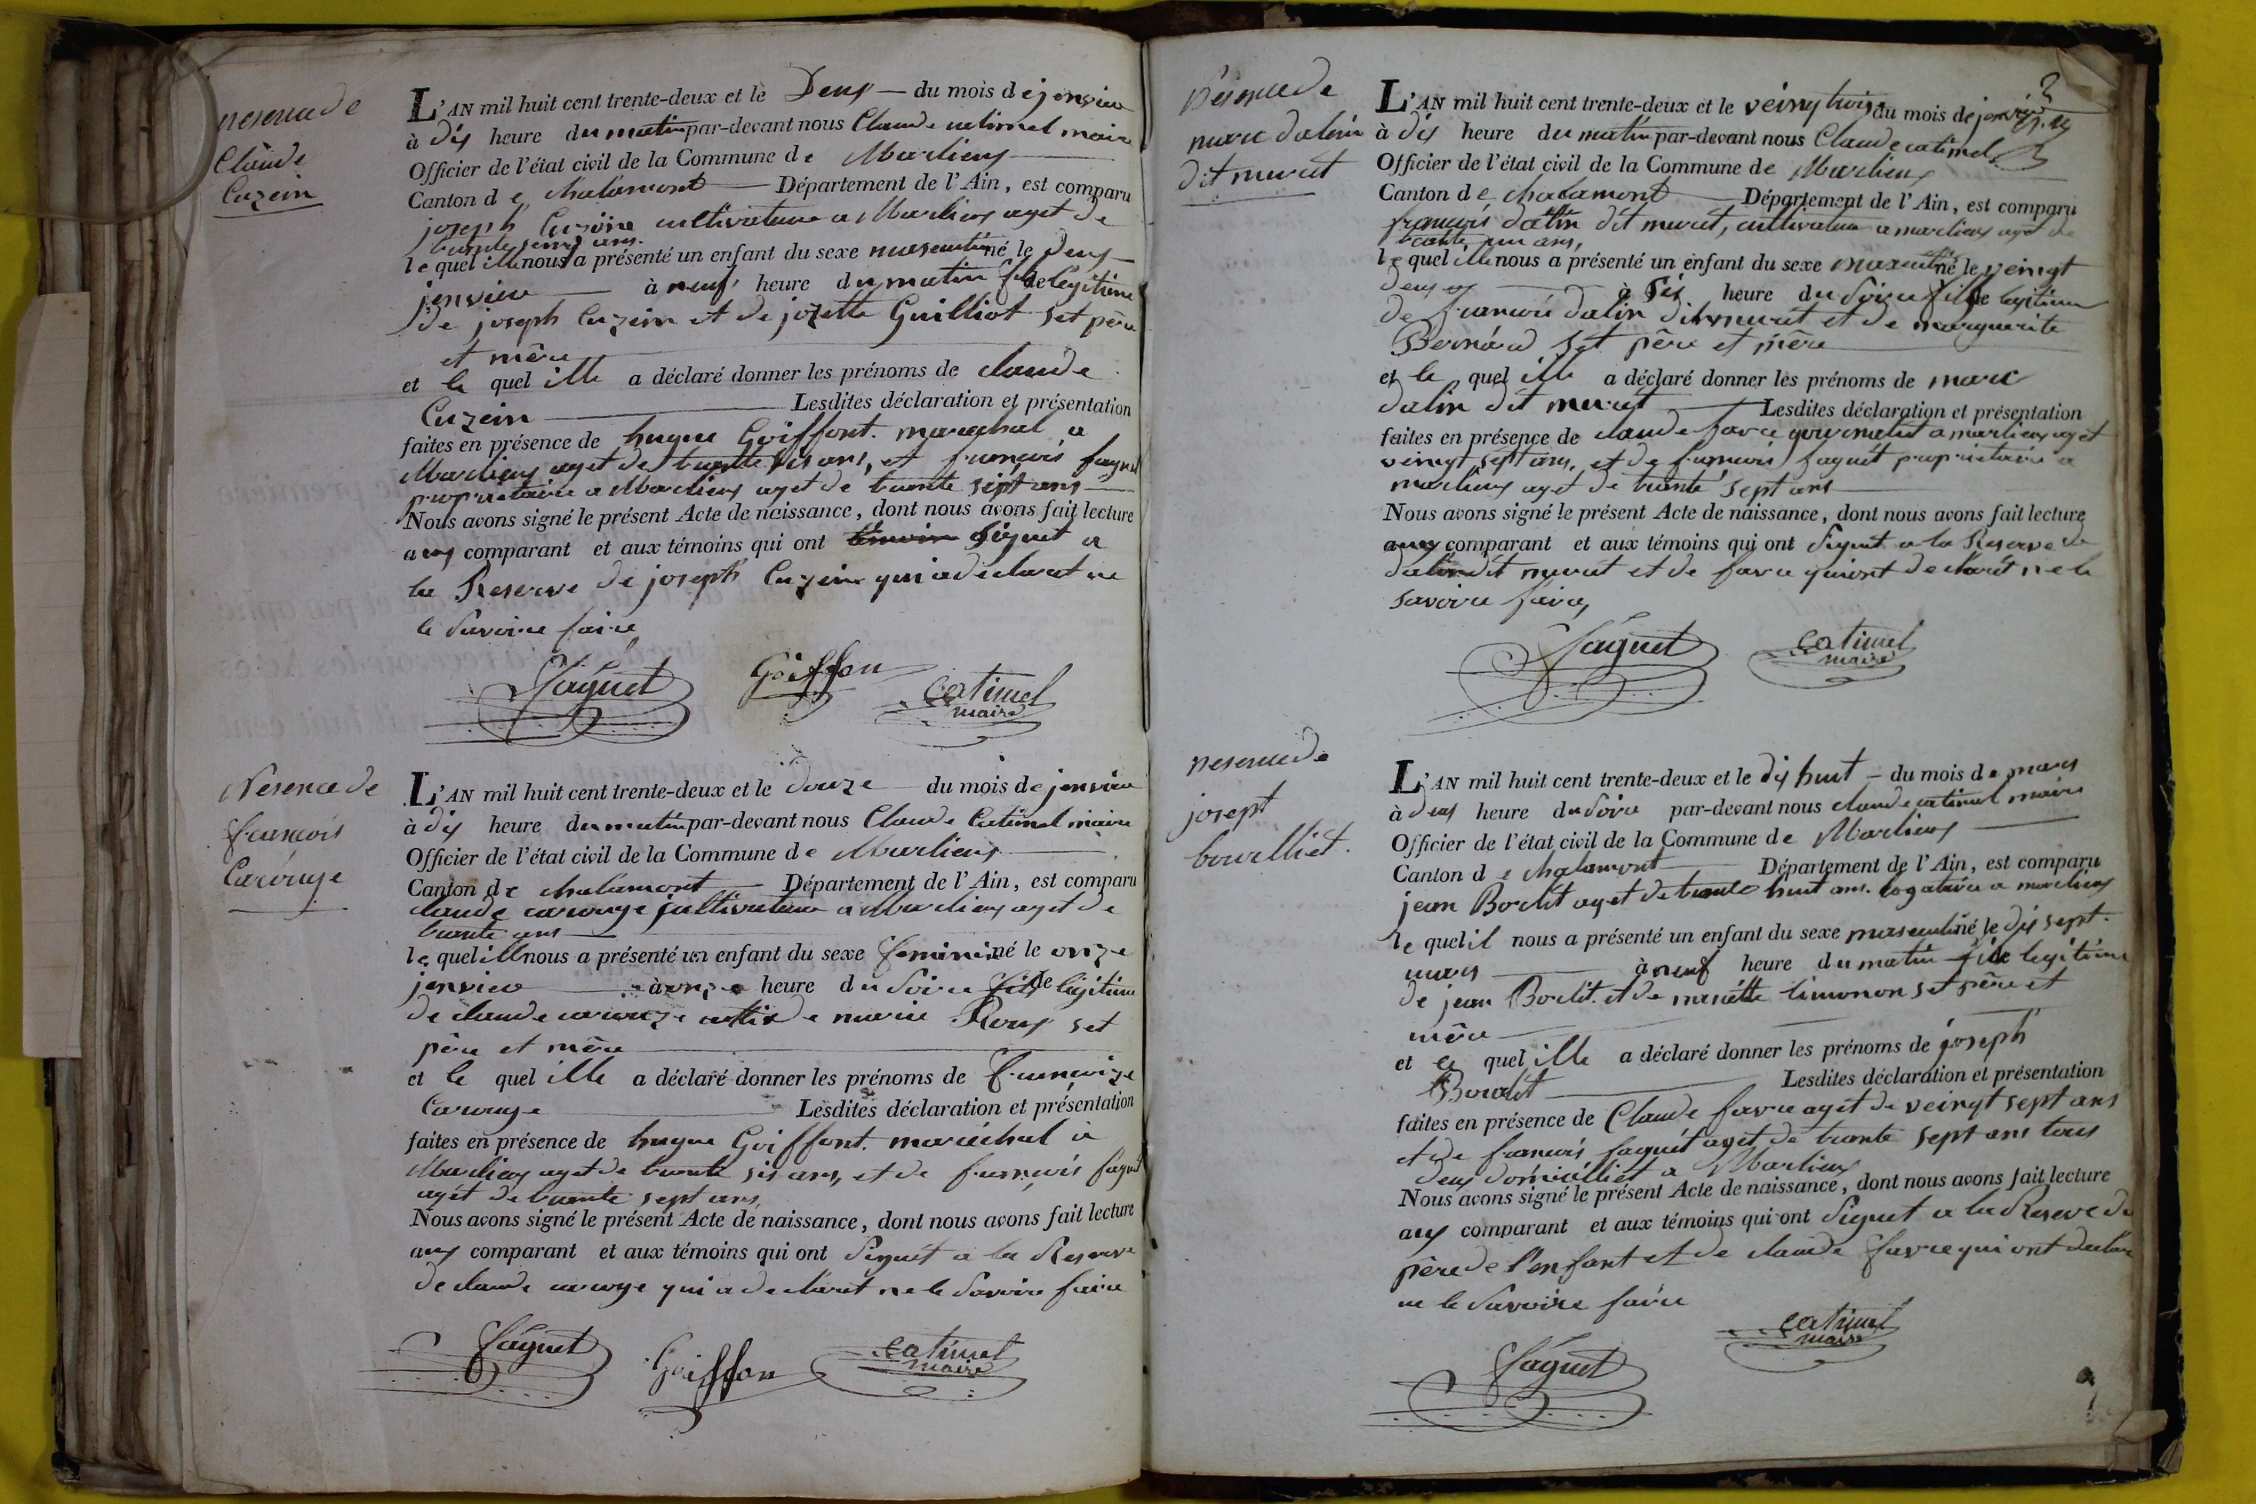 neseuce de
Claude
Cuzein
L'AN mil huit cent trente-deux et le Deux — du mois de jenvier
à dix heure du matin par-devant nous Claude catimel maire
Officier de l'état civil de la Commune de Marlieux
Canton de chalamont Département de l'Ain, est comparu
joseph Cuzein cultivateur a Marlieux aget de
trante ans
le quel ille nous a présenté un enfant du sexe masculin né le Deux
jenvier à neuf heure du matin fils legitime
de joseph Cuzein et de jozette Guilliot set père
et mère
et le quel ille a déclaré donner les prénoms de claude
Cuzein Lesdites déclaration et présentation
faites en présence de hugue Goiffont marechal a
Marlieux aget de trante sis ans, et francois faguet
propriétaire a Marlieux aget de trante sept ans
Nous avons signé le présent Acte de naissance, dont nous avons fait lecture
aux comparant et aux témoins qui ont témoin signet a
la Reserve de joseph Cuzein qui a declaret ne
le Savoire faire
faguet Goiffon catimel
maire
Nesence de
francois
Carouge
L'AN mil huit cent trente-deux et le douze du mois de jenvier
à dix heure du matin par-devant nous Claude Catimel maire
Officier de l'état civil de la Commune de Marlieux
Canton de chalamont Département de l'Ain, est comparu
claude carouge cultivateur a Marlieux aget de
trante ans
le quel ille nous a présenté un enfant du sexe feminin né le onze
jenvier à onze heure du Soire fille legitime
de claude carouge et de marie Roux set
père et mère
et le quel ille a déclaré donner les prénoms de francoize
Carouge Lesdites déclaration et présentation
faites en présence de hugue Goiffont maréchal a
Marlieux aget de trante sis ans, et de francois faguet
aget de trante sept ans
Nous avons signé le présent Acte de naissance, dont nous avons fait lecture
aux comparant et aux témoins qui ont Signet a la Reserve
de claude carouge qui a declaret ne le Savoire faire
faguet Goiffon catimel
maire
2
Nesence de
marc dalin
dit murat
L'AN mil huit cent trente-deux et le veingtrois du mois de jenvier
à dix heure du matin par-devant nous Claude catimel
Officier de l'état civil de la Commune de Marlieux
Canton de chalamont Département de l'Ain, est comparu
francois dalin dit murat, cultivateur a marlieux aget de
trante un ans,
le quel ille nous a présenté un enfant du sexe masculin né le veingt
deux à sis heure du Soire fils legitime
de francois dalin dit murat et de marguerite
Bernard set père et mère
et le quel ille a déclaré donner les prénoms de marc
dalin dit murat Lesdites déclaration et présentation
faites en présence de claude favre a marlieux aget
veingt sept ans, et de francois faguet propriétaire a
marlieux aget de trante sept ans
Nous avons signé le présent Acte de naissance, dont nous avons fait lecture
aux comparant et aux témoins qui ont Signet a la Reserve de
dalin dit murat et de favre qui ont declaret ne le
savoire faire,
faguet catimel
maire
nesence de
josept
bourlliet.
L'AN mil huit cent trente-deux et le dix huit — du mois de mars
à deux heure du Soire par-devant nous claude catimel maire
Officier de l'état civil de la Commune de Marlieux
Canton de chalamont Département de l'Ain, est comparu
jean Borlit aget de trante huit ans logataire a marlieux
le quel il nous a présenté un enfant du sexe masculin né le dix sept
mars à neuf heure du matin fils legitime
de jean Borlit et de mariette limonon set père et
mère
et le quel ille a déclaré donner les prénoms de joseph
Borlit Lesdites déclaration et présentation
faites en présence de Claude favre aget de veingt sept ans
et de francois faguet aget de trante sept ans tous
deux domicilliet a Marlieux
Nous avons signé le présent Acte de naissance, dont nous avons fait lecture
aux comparant et aux témoins qui ont Signet a la Reserve du
père de l'enfant et de claude favre qui ont declare
ne le Savoire faire
faguet catimel
maire